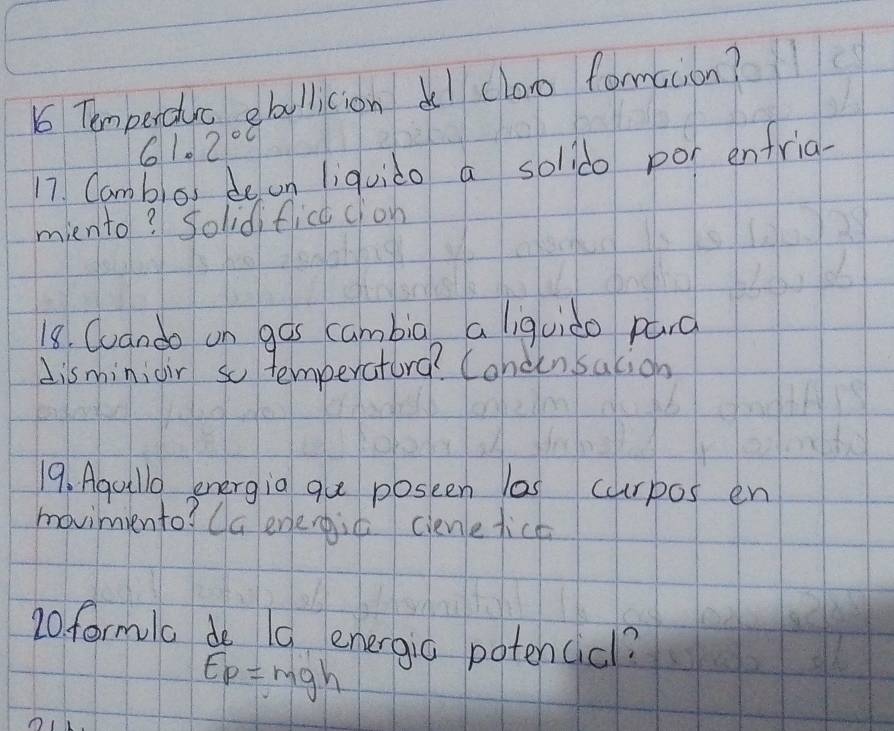 16 Temperdura ebullicion del cloro formacion?
61.2°c
17. Cambios de un liquido a solido por enfria-
miento? Solidificacion
18. Cuando un gas cambia a liquido para
disminiuir su temperatura? Condensacion
19. Aquello energia que poseen los curpos en
movimiento? La energia cienetica
20 formula de la energia potencial?
Ep = mgh